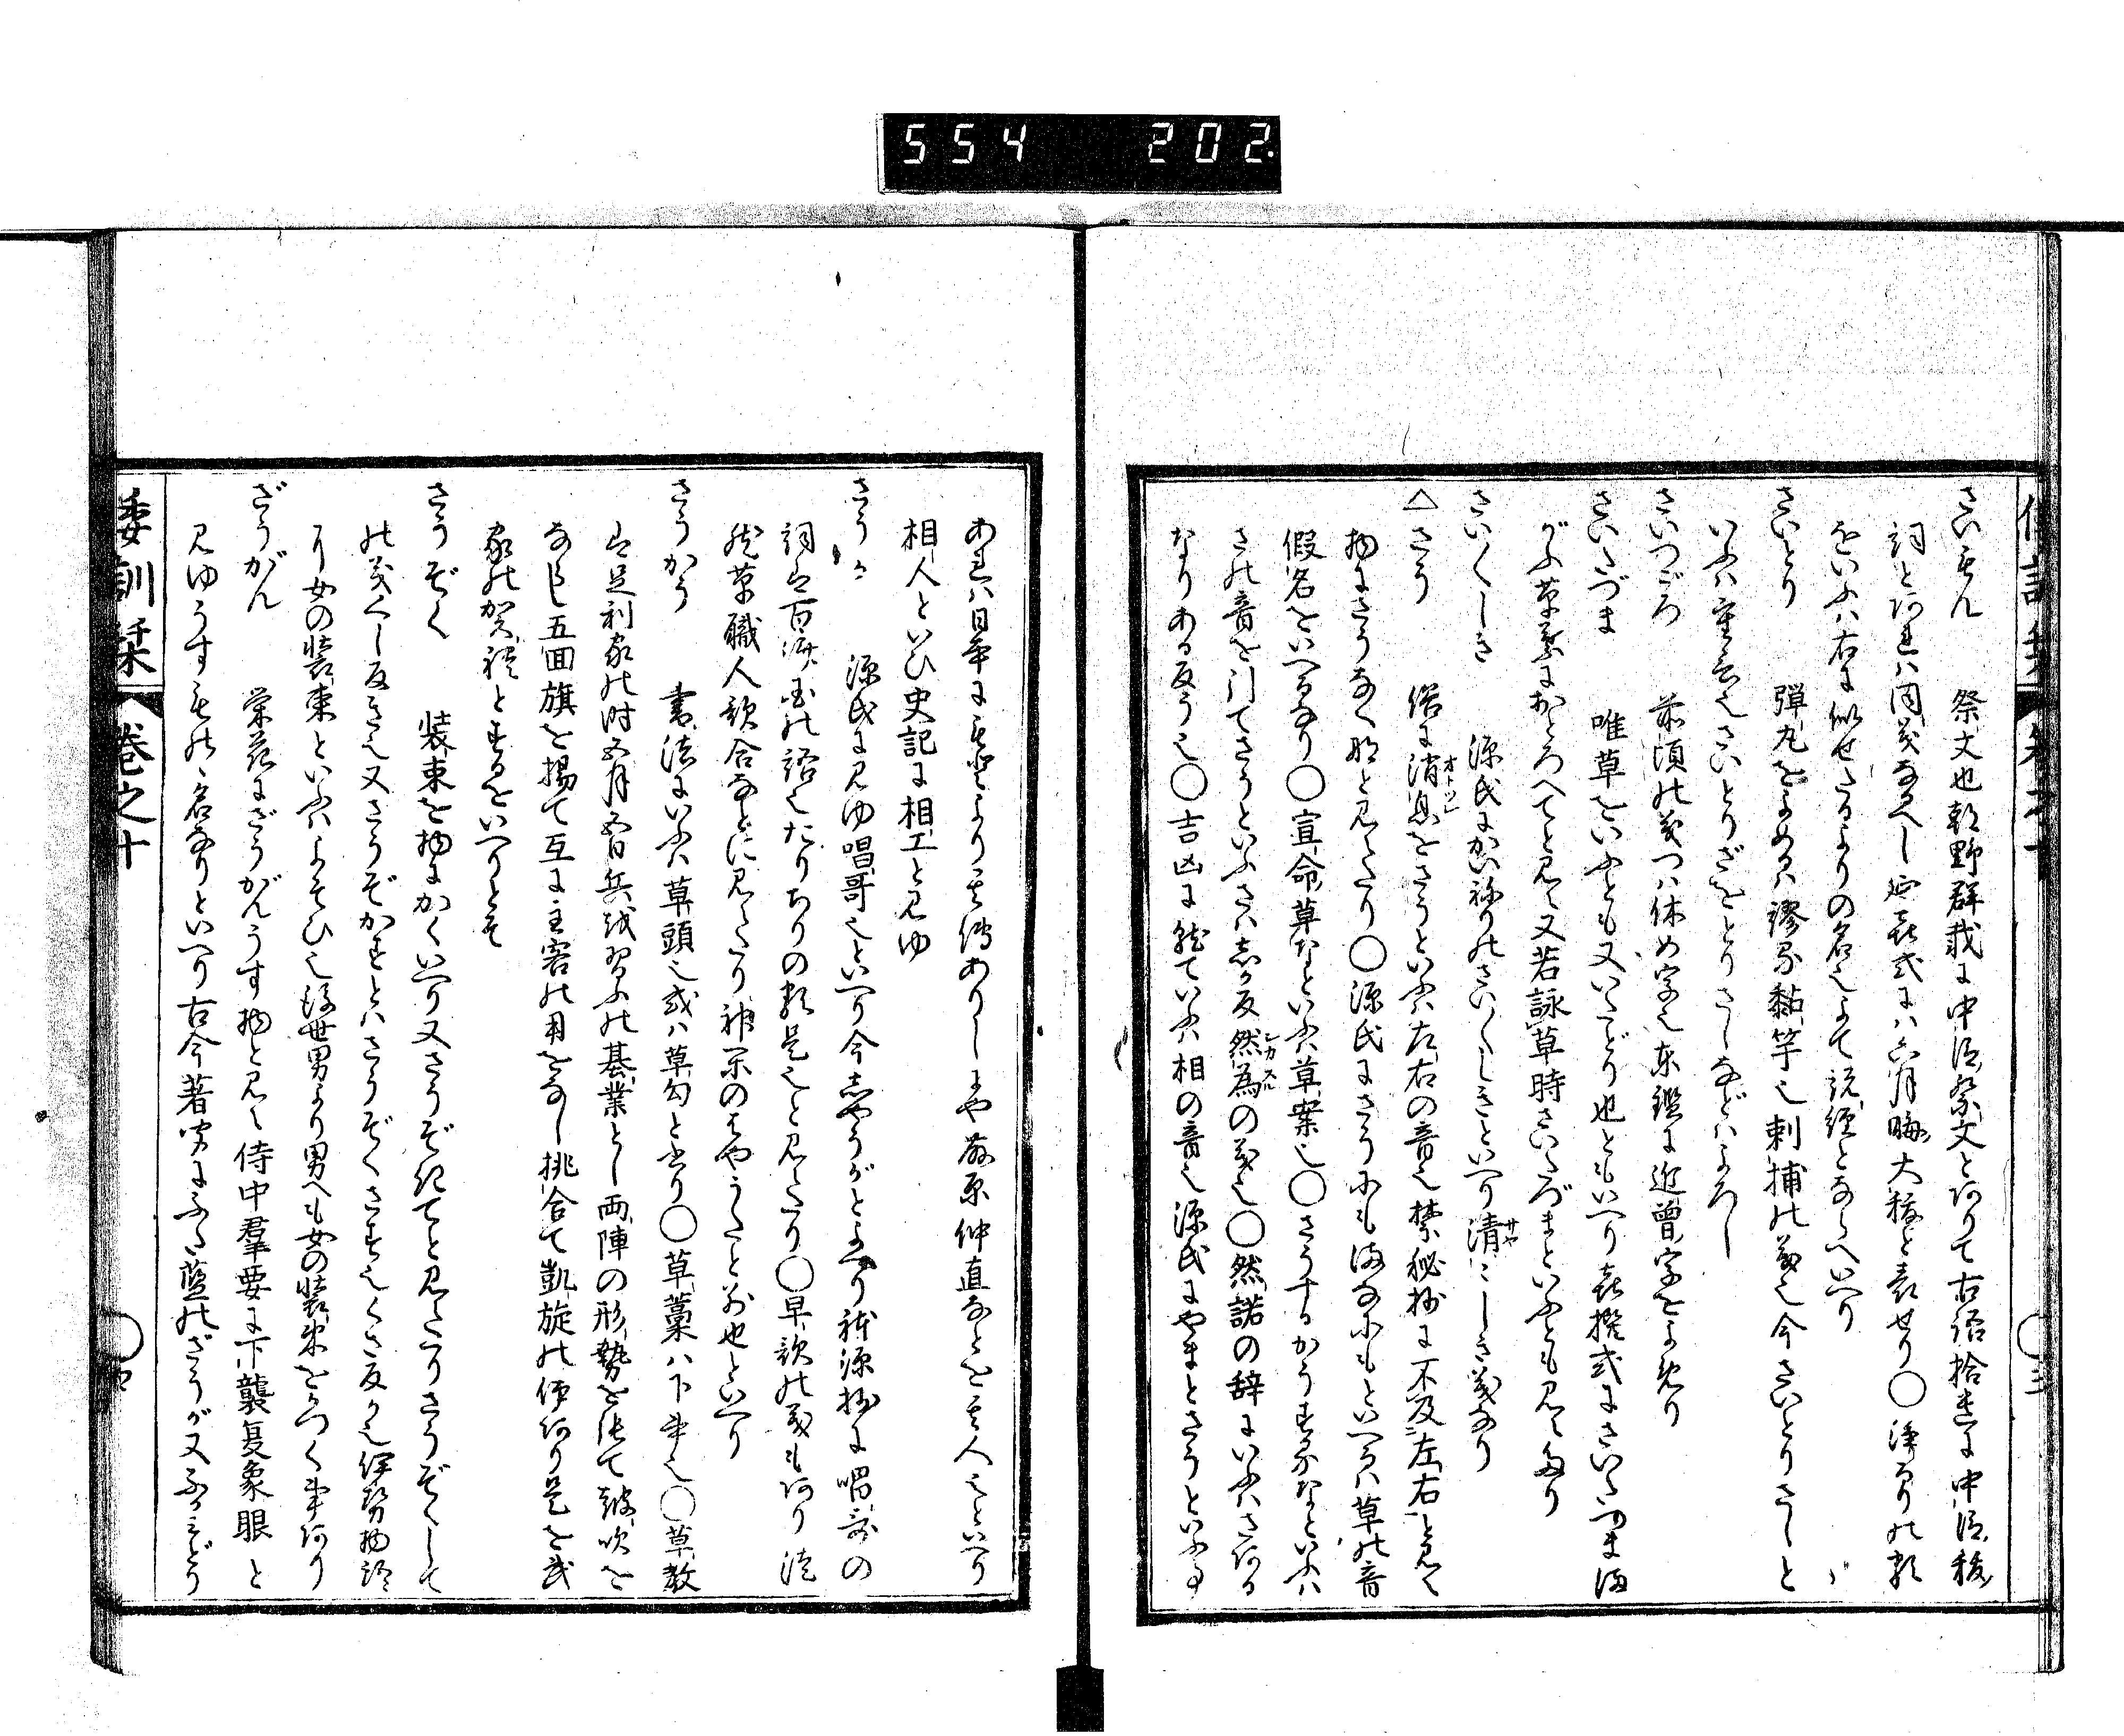 554 202.
さいもん 祭文也朝野群載に中臣祭文とありて古語拾遺に中臣禊
詞とあれハ同義なるへし延喜式にハ六月晦大祓と表せり○浄るりの類
をいふハ右に似せたるよりの名也よて説経とならへいへり
さいとり 弾丸をよめるハ謬る黏竿也刺捕の義也今さいとりさしと
いふハ重言也さいとりざをとりさしなどハよろし
さいつごろ 前頃の義つハ休め字也東鑑に近曽字をよめり
さいたづま 唯草をいふとも又いたどり也ともいへり喜撰式にさいたつまは
がふ草葉におとろへてと見え又若詠草時さいたづまといふとも見えたり
さいくしき 源氏にかい祢りのさいくしきといへり清々しき義なり
△さう 俗に消息をさうといふハ左右の音也禁秘抄に不及左右と見え
物にさうなく那と見えたり○源氏にさうにもまなにもといへるハ草の音
假名をいへるなり○宣命草なといふハ草案也○さうするかうするなといふハ
さの音を引てさうといふさハしか反然為の義也○然諾の辞にいふハさある
なりある反う也○吉凶に就ていふハ相の音也源氏にやまとさうといふ事
あれハ日本にもとより其傳ありしにや藤原仲直なとを其人也といへり
相人といひ史記に相工と見ゆ
さうか 源氏に見ゆ唱哥也といへり今しやうがとよへり弄源抄に唱哥の
詞ハ百済国の語也たりちりの類是也と見えたり○早歌の義もあり徒
然草職人歌合なとに見えたり神楽のはやうたと別也といへり
さうかう 書法にいふハ草頭也或ハ草勾と書り○草藁ハ下書也○草教
ハ足利家の時五月五日兵を習ふの基業とし両陣の形勢を作て鼓吹を
なし五面旗を揚て互に主客の用をなし挑合て凱旋の作あり是を武
家の賀禮とするをいへりとそ
さうぞく 装束を物にかくいへり又さうぞきてと見えたりさうぞくして
の義くし反き也又さうぞかすとハさうぞくさす也くさ反か也伊勢物語
に女の装束といふハよそひ也後世男より男へも女の装束をかつく事あり
ざうがん 栄花にざうがんうす物と見え侍中羣要に下襲夏象眼と
見ゆうすものゝ名なりといへり古今著聞にふた藍のざうが又ふかみどり
倭訓栞 巻之十 ○四